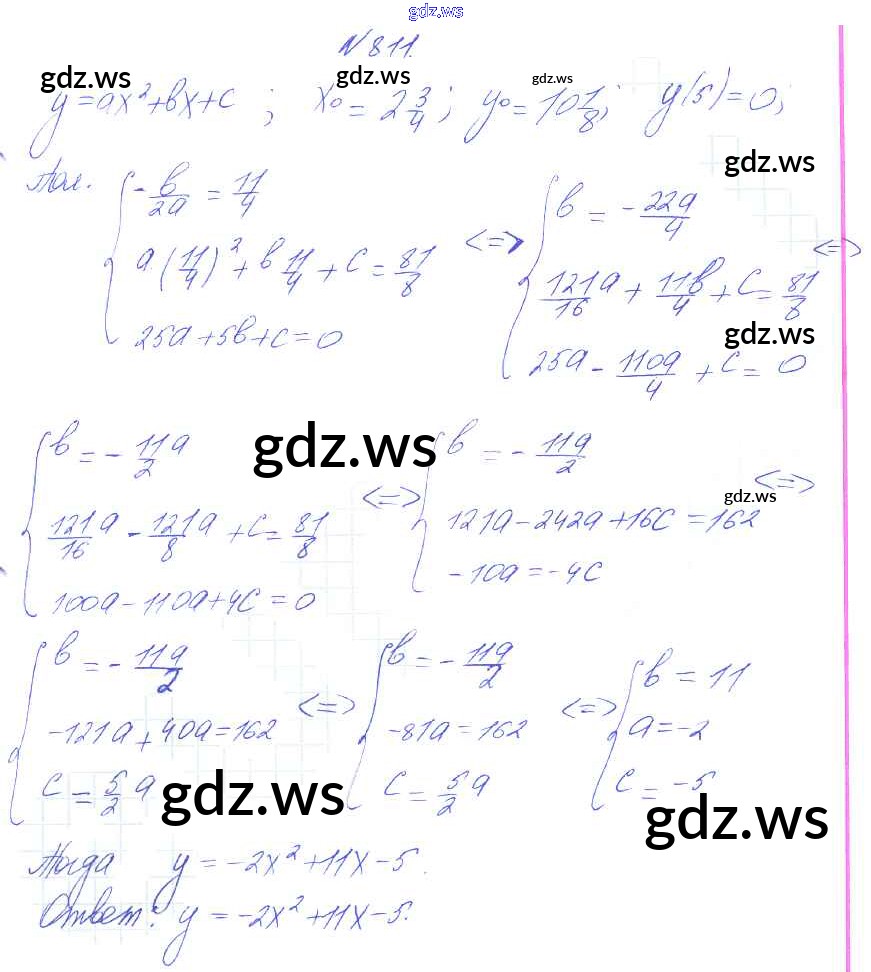 gdz.ws
N 811.
gdz.ws gdz.ws gdz.ws
y = ax² + bx + c ; x₀ = 2 3/4 ; y₀ = 10 1/8 ; y(5) = 0 ;
gdz.ws
{ -b/2a = 11/4
a(11/4)² + b 11/4 + c = 81/8
25a + 5b + c = 0
<=>
{ b = -22a/4
121a/16 + 11b/4 + c = 81/8
gdz.ws
25a - 110a/4 + c = 0
<=>
{ b = -11a/2
121a/16 - 121a/8 + c = 81/8
100a - 110a + 4c = 0
gdz.ws
<=>
{ b = -11a/2
gdz.ws
121a - 242a + 16c = 162
-10a = -4c
<=>
{ b = -11a/2
-121a + 40a = 162
c = 5/2 a
gdz.ws
<=>
{ b = -11a/2
-81a = 162
c = 5/2 a
<=>
{ b = 11
a = -2
c = -5
gdz.ws
Тогда y = -2x² + 11x - 5.
Ответ: y = -2x² + 11x - 5.